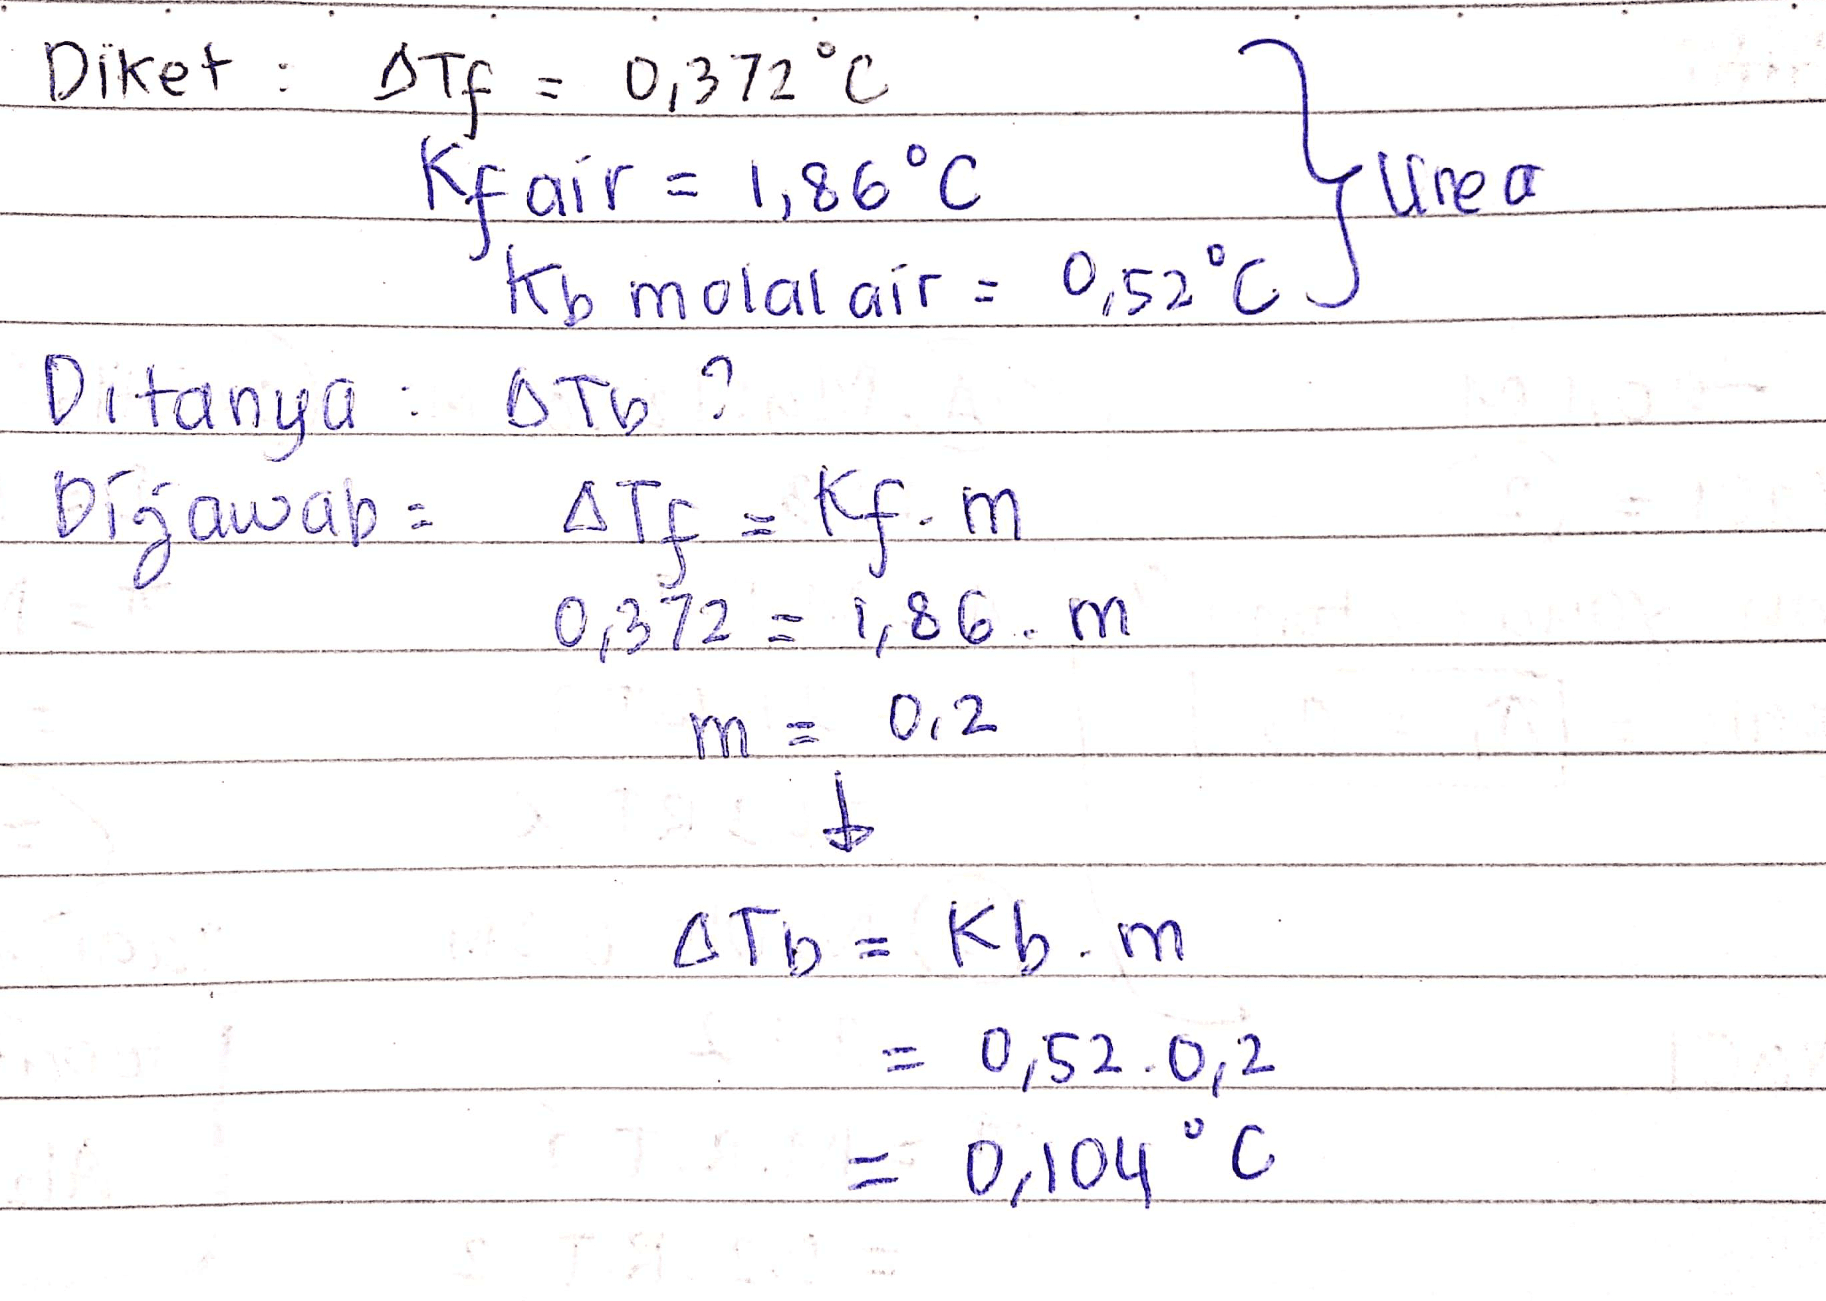 Diket : ΔTf = 0,372°C
Kf air = 1,86°C
Urea
Kb molal air = 0,52°C
Ditanya : ΔTb ?
Dijawab = ΔTf = Kf . m
0,372 = 1,86 . m
m = 0,2
↓
ΔTb = Kb . m
= 0,52 . 0,2
= 0,104°C